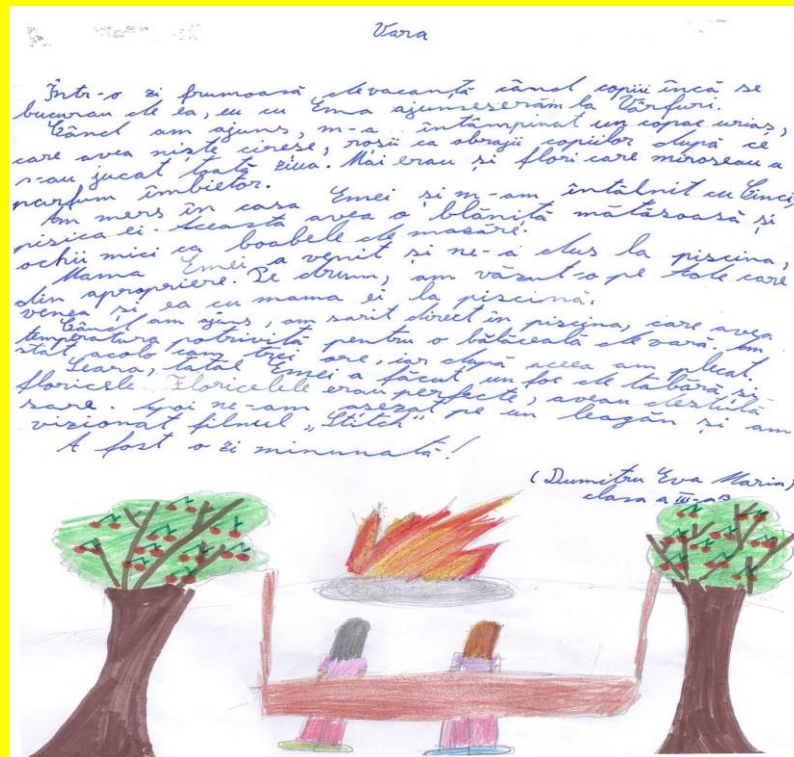 Vara
Într-o zi frumoasă de vacanță când copiii încă se
bucurau de ea, eu cu Ema ajunseserăm la Vârfuri.
Când am ajuns, m-a întâmpinat un copac uriaș,
care avea niște cireșe, roșii ca obrajii copiilor după ce
s-au jucat toată ziua. Mai erau și flori care miroseau a
parfum îmbietor.
Am mers în casa Emei și m-am întâlnit cu Cinci,
pisica ei. Aceasta avea o blăniță mătăsoasă și
ochii mici ca boabele de mazăre.
Mama Emei a venit și ne-a dus la piscina,
din apropriere. Pe drum, am văzut-o pe care
venea și ea cu mama ei la piscină.
Când am ajuns, am sarit direct în piscina, care avea
temperatura potrivită pentru o bălăceală de vara. Am
stat acolo cam trei ore, iar după aceea am plecat.
Seara, tatăl Emei a făcut un foc de tabără și
floricele. Floricelele erau perfecte, aveau destulă
sare. Apoi ne-am asezat pe un leagăn și am
vizionat filmul „Stitch”
A fost o zi minunată!
(Dumitru Eva Maria)
clasa a III-a B